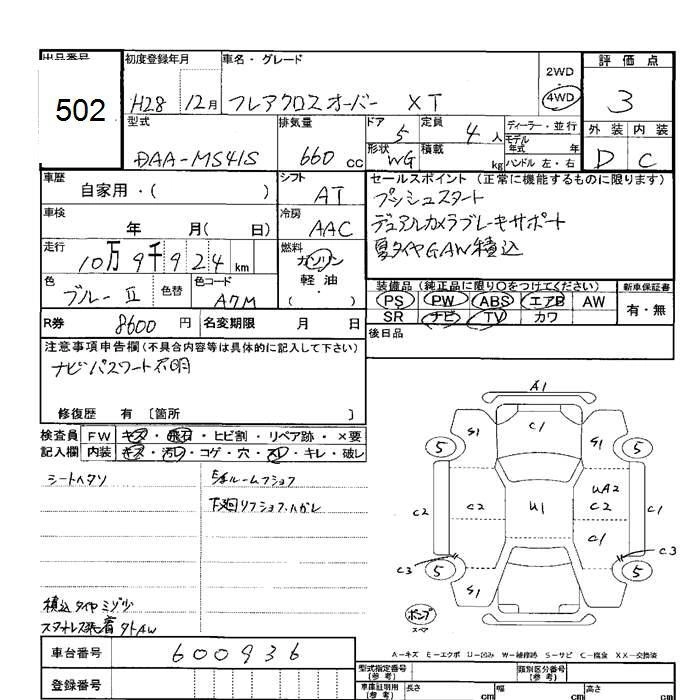 出品番号
502
初度登録年月
H28 12月
車名・グレード
フレアクロスオーバー XT
2WD
4WD
評価点
3
型式
DAA-MS41S
排気量
660 cc
ドア
5
定員
4 人
形状
WG
積載
kg
ディーラー・並行
モデル年式 年
ハンドル 左・右
外装 内装
D C
車歴
自家用・( )
シフト
AT
セールスポイント(正常に機能するものに限ります)
プッシュスタート
デュアルカメラブレーキサポート
夏タイヤGAW積込
車検
年 月( 日)
冷房
AAC
走行
10万9千924 km
燃料
ガソリン
軽油
( )
色
ブルーⅡ
色替
色コード
A7M
装備品(純正品に限り○をつけてください)
新車保証書
PS PW ABS エアB AW
SR ナビ TV カワ
有・無
R券
8600 円
名変期限 月 日
後日品
注意事項申告欄(不具合内容等は具体的に記入して下さい)
ナビパスワード不明
修復歴 有〔箇所 〕
検査員
記入欄
FW キズ・飛石・ヒビ割・リペア跡・×要
内装 キズ・汚レ・コゲ・穴・スレ・キレ・破レ
シートヘタリ
ルームフショク
下廻リフショク・ハガレ
積込タイヤミゾ
A1
C1
S1
S1
5
5
C2
C2
U1
UA2
C2
C1
C1
C3
C3
5
5
S1
スペア
A−キズ E−エクボ U−凹み W−補修跡 S−サビ C−腐食 XX−交換済
車台番号
600936
登録番号
型式指定番号
(参考)
類別区分番号
(参考)
車庫証明用
(参考)
長さ cm
幅 cm
高さ cm